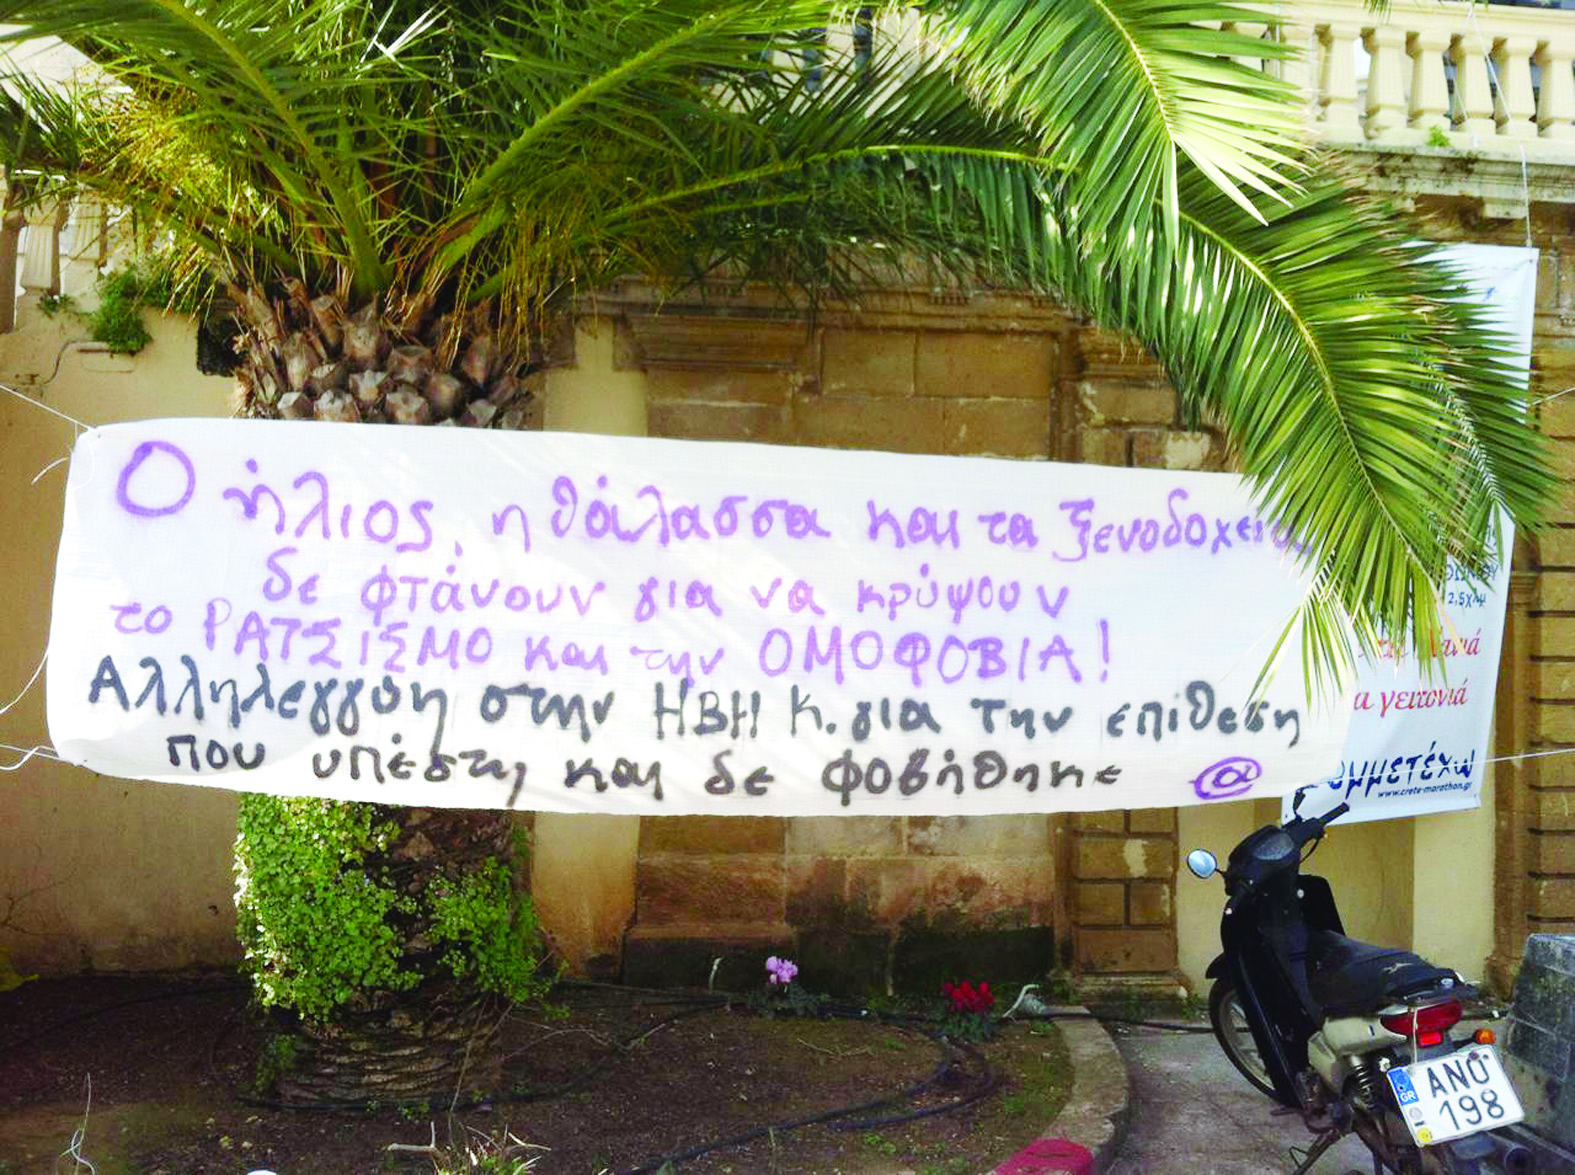 Ο ήλιος, η θάλασσα και τα ξενοδοχεία
δε φτάνουν για να κρύψουν
το ΡΑΤΣΙΣΜΟ και την ΟΜΟΦΟΒΙΑ!
Αλληλεγγύη στην ΗΒΗ Κ. για την επίθεση
που υπέστη και δε φοβήθηκε @
2,5χλμ
α γειτονιά
υμμετέχω
www.crete-marathon.gr
GR
ANO
198